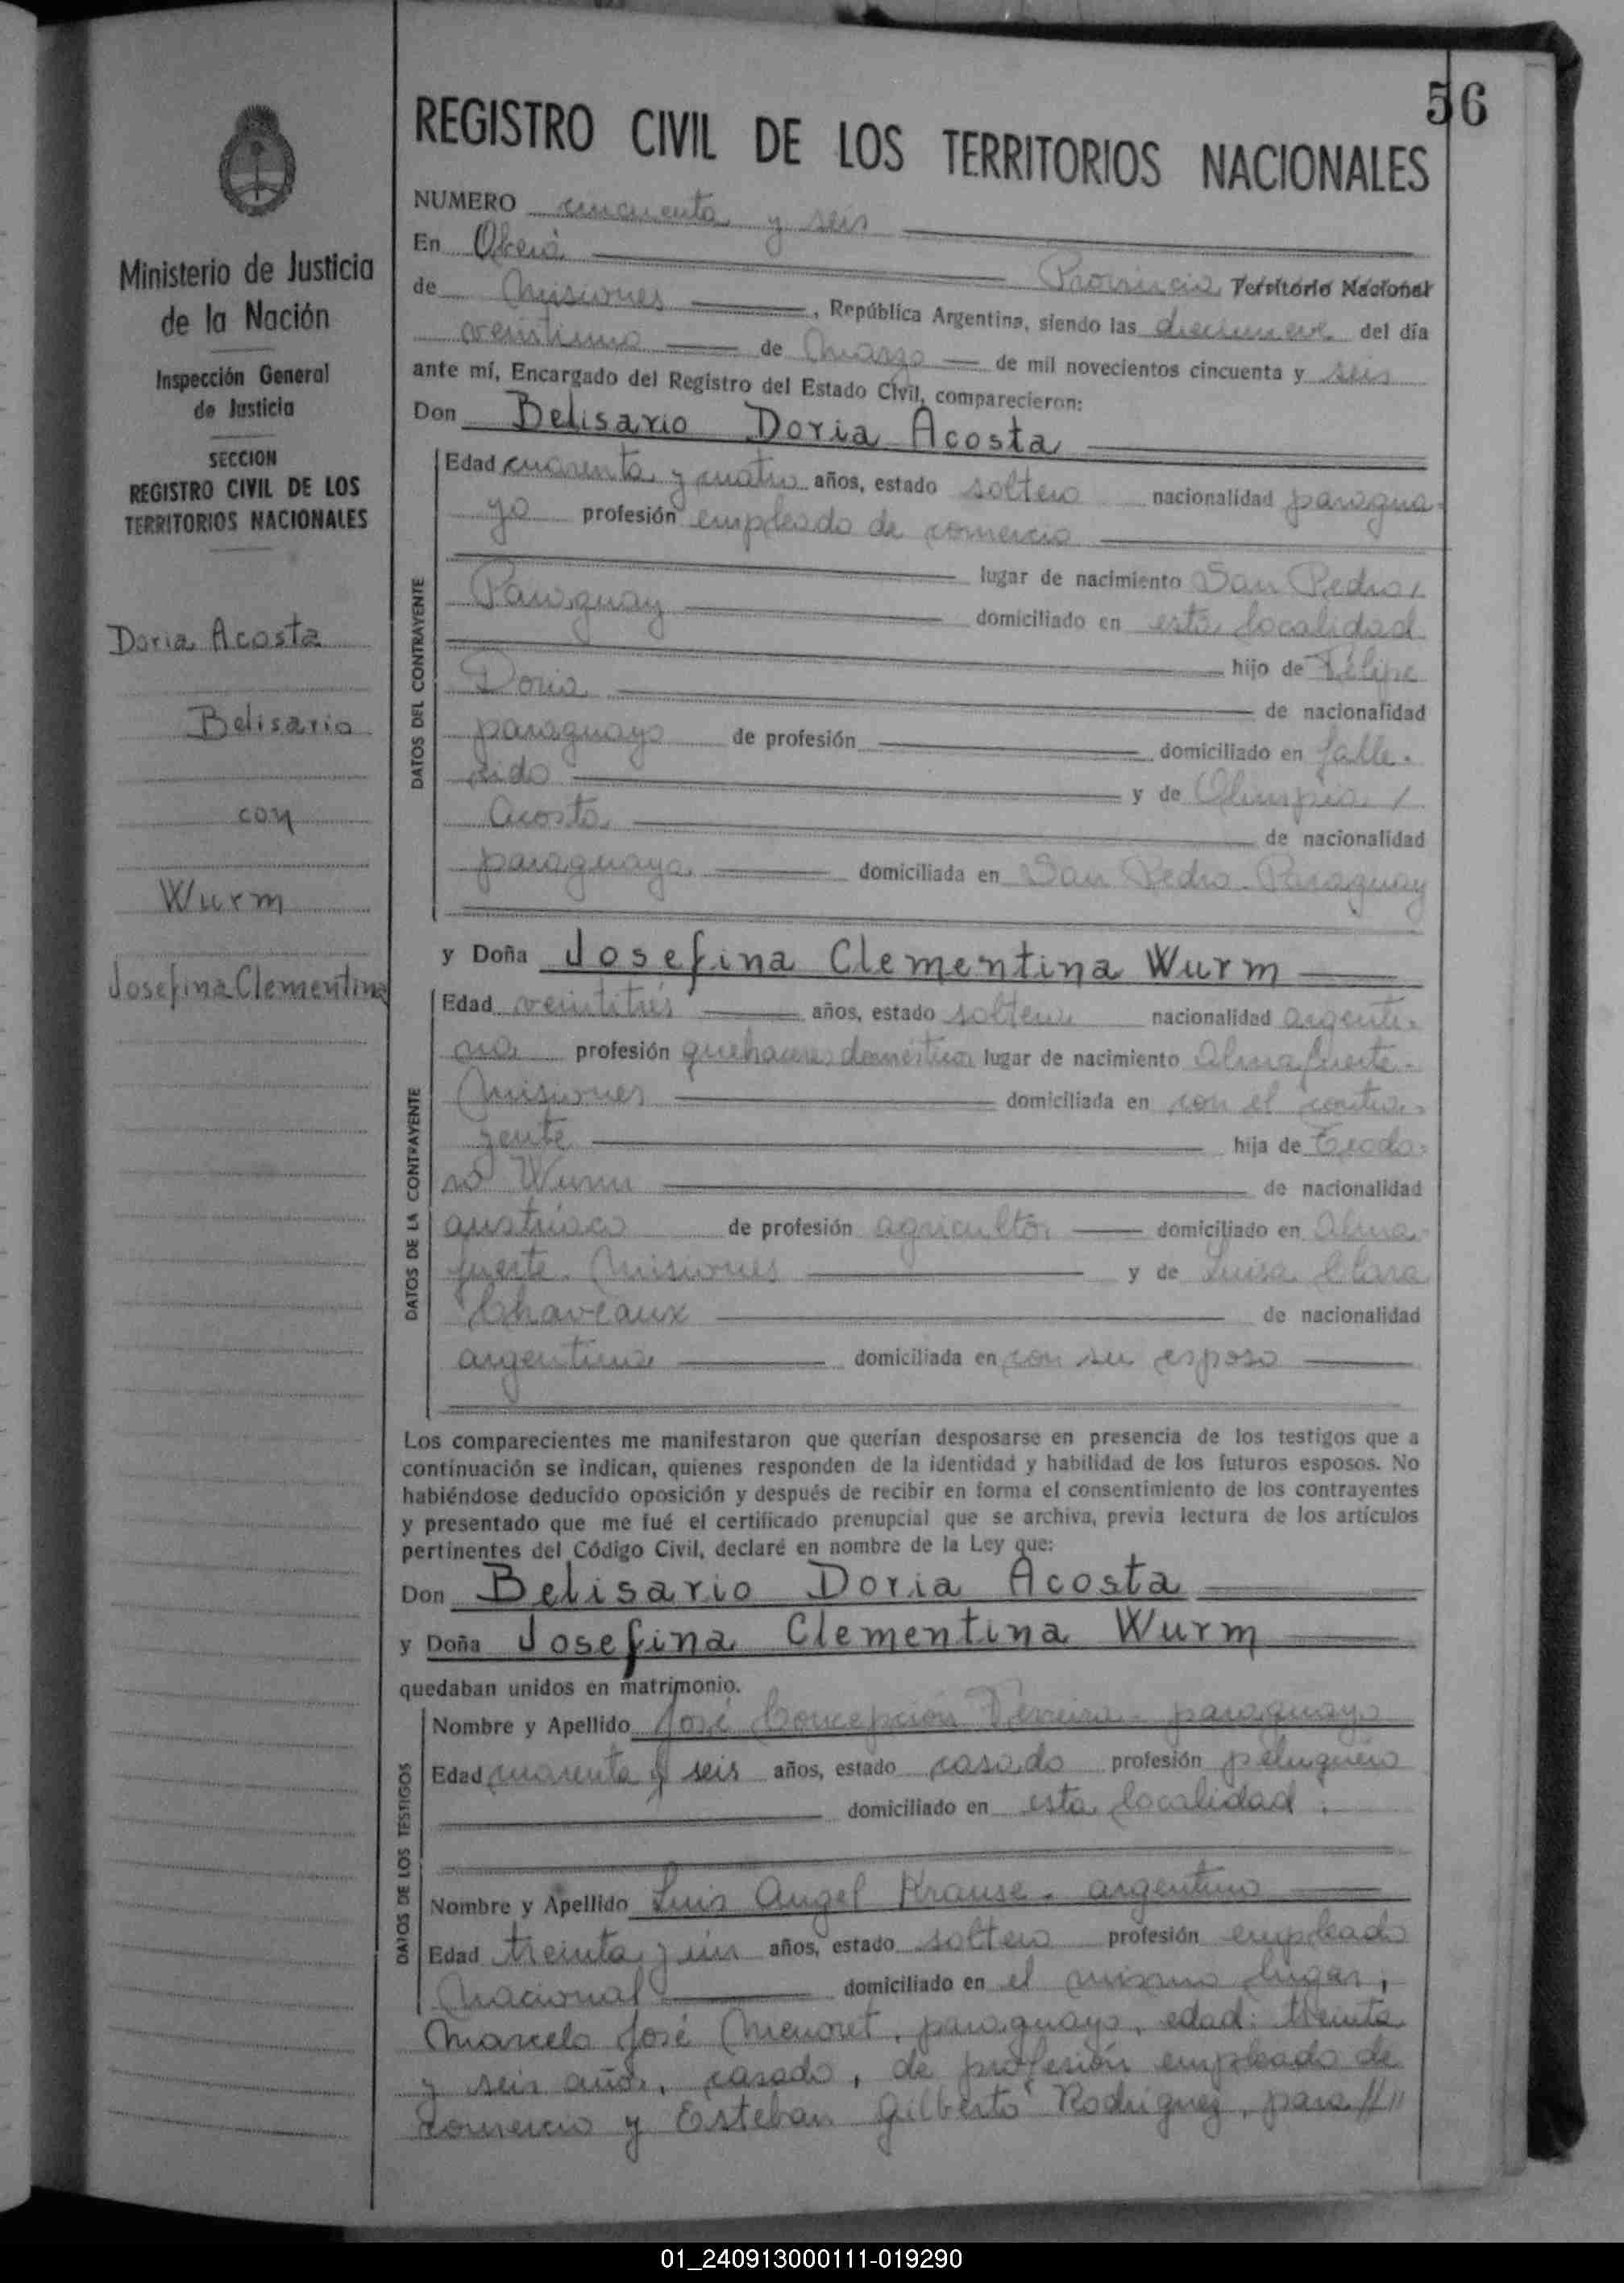 56
REGISTRO CIVIL DE LOS TERRITORIOS NACIONALES
NUMERO cincuenta y seis
En Oberá Provincia Territorio Nacional
de Misiones, República Argentina, siendo las diecinueve del día
veintiuno de Marzo de mil novecientos cincuenta y seis
ante mí, Encargado del Registro del Estado Civil, comparecieron:
Don Belisario Doria Acosta
DATOS DEL CONTRAYENTE
Edad cuarenta y cuatro años, estado soltero nacionalidad paragua-
yo profesión empleado de comercio
lugar de nacimiento San Pedro/
Paraguay domiciliado en esta localidad
hijo de Félipe
Doria de nacionalidad
paraguayo de profesión domiciliado en falle-
cido y de Olimpia /
Acosta de nacionalidad
paraguaya domiciliada en San Pedro-Paraguay
y Doña Josefina Clementina Wurm
DATOS DE LA CONTRAYENTE
Edad veintitrés años, estado soltera nacionalidad argenti-
na profesión quehaceres domésticos lugar de nacimiento Almafuerte-
Misiones domiciliada en con el contra-
yente hija de Teodo-
ro Wurm de nacionalidad
austríaco de profesión agricultor domiciliado en Alma-
fuerte. Misiones y de Luisa Clara
Chaveaux de nacionalidad
argentina domiciliada en con su esposo
Los comparecientes me manifestaron que querían desposarse en presencia de los testigos que a
continuación se indican, quienes responden de la identidad y habilidad de los futuros esposos. No
habiéndose deducido oposición y después de recibir en forma el consentimiento de los contrayentes
y presentado que me fué el certificado prenupcial que se archiva, previa lectura de los artículos
pertinentes del Código Civil, declaré en nombre de la Ley que:
Don Belisario Doria Acosta
y Doña Josefina Clementina Wurm
quedaban unidos en matrimonio.
DATOS DE LOS TESTIGOS
Nombre y Apellido José Concepción Ferreira- paraguayo
Edad cuarenta y seis años, estado casado profesión peluquero
domiciliado en esta localidad;
Nombre y Apellido Luis Angel Krause- argentino
Edad treinta y un años, estado soltero profesión empleado
Nacional domiciliado en el mismo lugar;
Marcelo José Menoret, paraguayo, edad: treinta
y seis años, casado, de profesión empleado de
comercio y Esteban Gilberto Rodriguez, para//"
Ministerio de Justicia
de la Nación
Inspección General
de Justicia
SECCION
REGISTRO CIVIL DE LOS
TERRITORIOS NACIONALES
Doria Acosta
Belisario
con
Wurm
Josefina Clementina
01_240913000111-019290